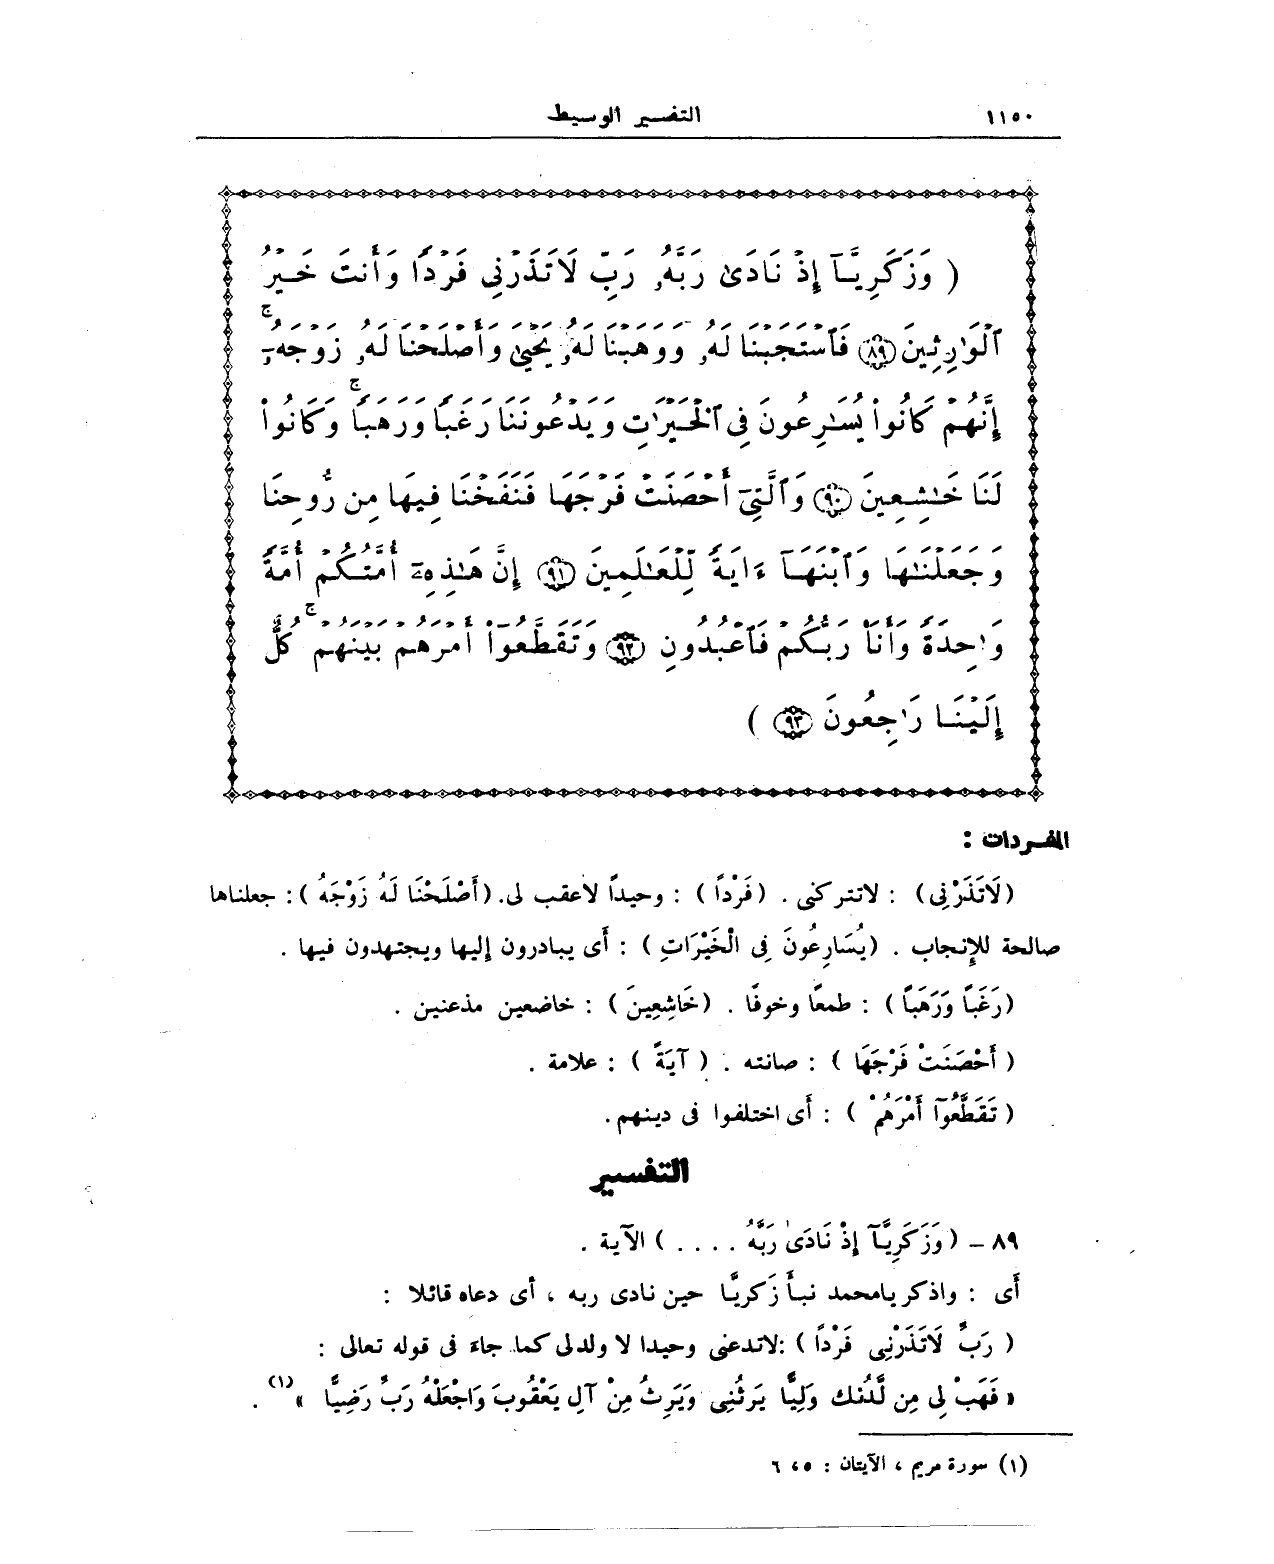 ١١٥٠ التفسير الوسيط
( وَزَكَرِيَّآ إِذْ نَادَىٰ رَبَّهُۥ رَبِّ لَا تَذَرْنِى فَرْدًا وَأَنتَ خَيْرُ
ٱلْوَٰرِثِينَ ٨٩ فَٱسْتَجَبْنَا لَهُۥ وَوَهَبْنَا لَهُۥ يَحْيَىٰ وَأَصْلَحْنَا لَهُۥ زَوْجَهُۥٓ ۚ
إِنَّهُمْ كَانُوا۟ يُسَٰرِعُونَ فِى ٱلْخَيْرَٰتِ وَيَدْعُونَنَا رَغَبًا وَرَهَبًا ۚ وَكَانُوا۟
لَنَا خَٰشِعِينَ ٩٠ وَٱلَّتِىٓ أَحْصَنَتْ فَرْجَهَا فَنَفَخْنَا فِيهَا مِن رُّوحِنَا
وَجَعَلْنَٰهَا وَٱبْنَهَآ ءَايَةً لِّلْعَٰلَمِينَ ٩١ إِنَّ هَٰذِهِۦٓ أُمَّتُكُمْ أُمَّةً
وَٰحِدَةً وَأَنَا۠ رَبُّكُمْ فَٱعْبُدُونِ ٩٢ وَتَقَطَّعُوٓا۟ أَمْرَهُم بَيْنَهُمْ ۚ كُلٌّ
إِلَيْنَا رَٰجِعُونَ ٩٣ )
المفردات :
(لَاتَذَرْنِى) : لاتتركنى . (فَرْدًا) : وحيداً لاعقب لى. (أَصْلَحْنَا لَهُ زَوْجَهُ): جعلناها
صالحة للإنجاب . (يُسَارِعُونَ فِى الْخَيْرَاتِ) : أَى يبادرون إليها ويجتهدون فيها .
(رَغَباً وَرَهَباً) : طمعًا وخوفًا . (خَاشِعِينَ) : خاضعين مذعنين .
(أَحْصَنَتْ فَرْجَهَا) : صانته . (آيَةً) : علامة .
(تَقَطَّعُوٓا أَمْرَهُمْ) : أَى اختلفوا فى دينهم.
التفسير
٨٩ - (وَزَكَرِيَّآ إِذْ نَادَىٰ رَبَّهُ ....) الآية .
أَى : واذكر يامحمد نبأَ زَكريَّا حين نادى ربه ، أى دعاه قائلا :
( رَبِّ لَاتَذَرْنِى فَرْدًا ) :لاتدعنى وحيدا لا ولدلى كما جاءَ فى قوله تعالى :
« فَهَبْ لِى مِن لَّدُنك وَلِيًّا يَرِثُنِى وَيَرِثُ مِنْ آلِ يَعْقُوبَ وَاجْعَلْهُ رَبِّ رَضِيًّا »(١) .
(١) سورة مريم ، الآيتان : ٥ ، ٦